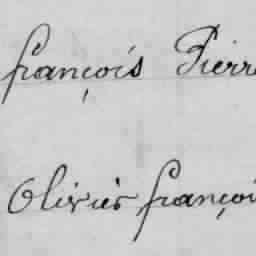 françois Pierre
Olivier françoi